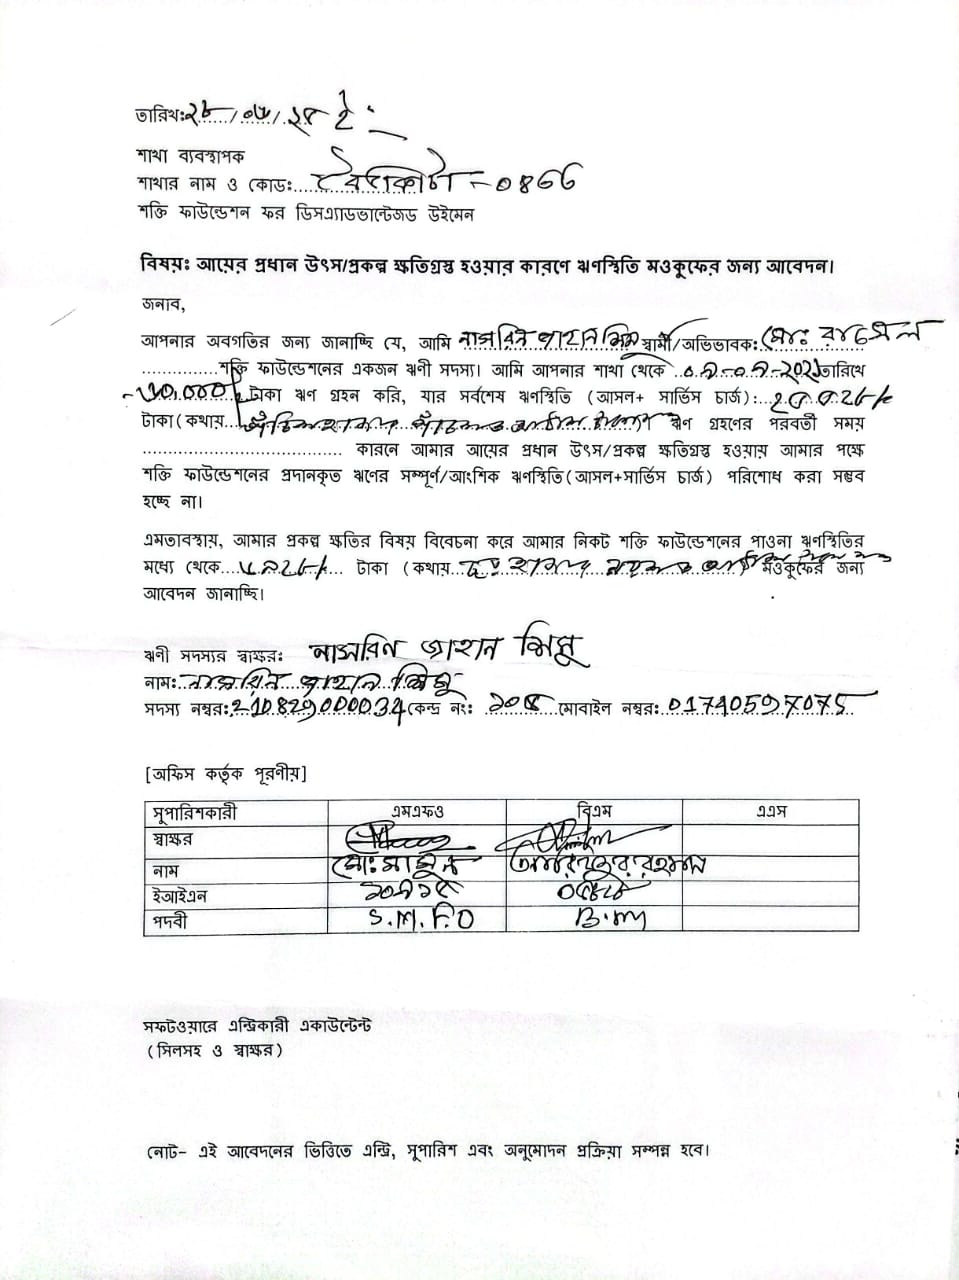 তারিখ: ২৮/০৬/২৪ ইং
শাখা ব্যবস্থাপক
শাখার নাম ও কোড: ০৪৬৬
শক্তি ফাউন্ডেশন ফর ডিসএ্যাডভান্টেজড উইমেন
বিষয়ঃ আয়ের প্রধান উৎস/প্রকল্প ক্ষতিগ্রস্ত হওয়ার কারণে ঋণস্থিতি মওকুফের জন্য আবেদন।
জনাব,
আপনার অবগতির জন্য জানাচ্ছি যে, আমি নাসরিন জাহান মিমু স্বামী/অভিভাবক: মোঃ রাসেল
শক্তি ফাউন্ডেশনের একজন ঋণী সদস্য। আমি আপনার শাখা থেকে তারিখে
টাকা ঋণ গ্রহন করি, যার সর্বশেষ ঋণস্থিতি (আসল+ সার্ভিস চার্জ):
টাকা (কথায় ঋণ গ্রহণের পরবর্তী সময়
কারনে আমার আয়ের প্রধান উৎস/প্রকল্প ক্ষতিগ্রস্ত হওয়ায় আমার পক্ষে
শক্তি ফাউন্ডেশনের প্রদানকৃত ঋণের সম্পূর্ণ/আংশিক ঋণস্থিতি(আসল+সার্ভিস চার্জ) পরিশোধ করা সম্ভব
হচ্ছে না।
এমতাবস্থায়, আমার প্রকল্প ক্ষতির বিষয় বিবেচনা করে আমার নিকট শক্তি ফাউন্ডেশনের পাওনা ঋণস্থিতির
মধ্যে থেকে টাকা (কথায় মওকুফের জন্য
আবেদন জানাচ্ছি।
ঋণী সদস্যের স্বাক্ষরঃ নাসরিন জাহান মিমু
নাম: নাসরিন জাহান মিমু
সদস্য নম্বর: 210829000034 কেন্দ্র নং: মোবাইল নম্বর: 01740597075
[অফিস কর্তৃক পূরণীয়]
সুপারিশকারী এমএফও বিএম এএস
স্বাক্ষর
নাম মোঃ মামুন
ইআইএন
পদবী S.M.F.O B.M
সফটওয়ারে এন্ট্রিকারী একাউন্টেন্ট
(সিলসহ ও স্বাক্ষর)
নোট- এই আবেদনের ভিত্তিতে এন্ট্রি, সুপারিশ এবং অনুমোদন প্রক্রিয়া সম্পন্ন হবে।